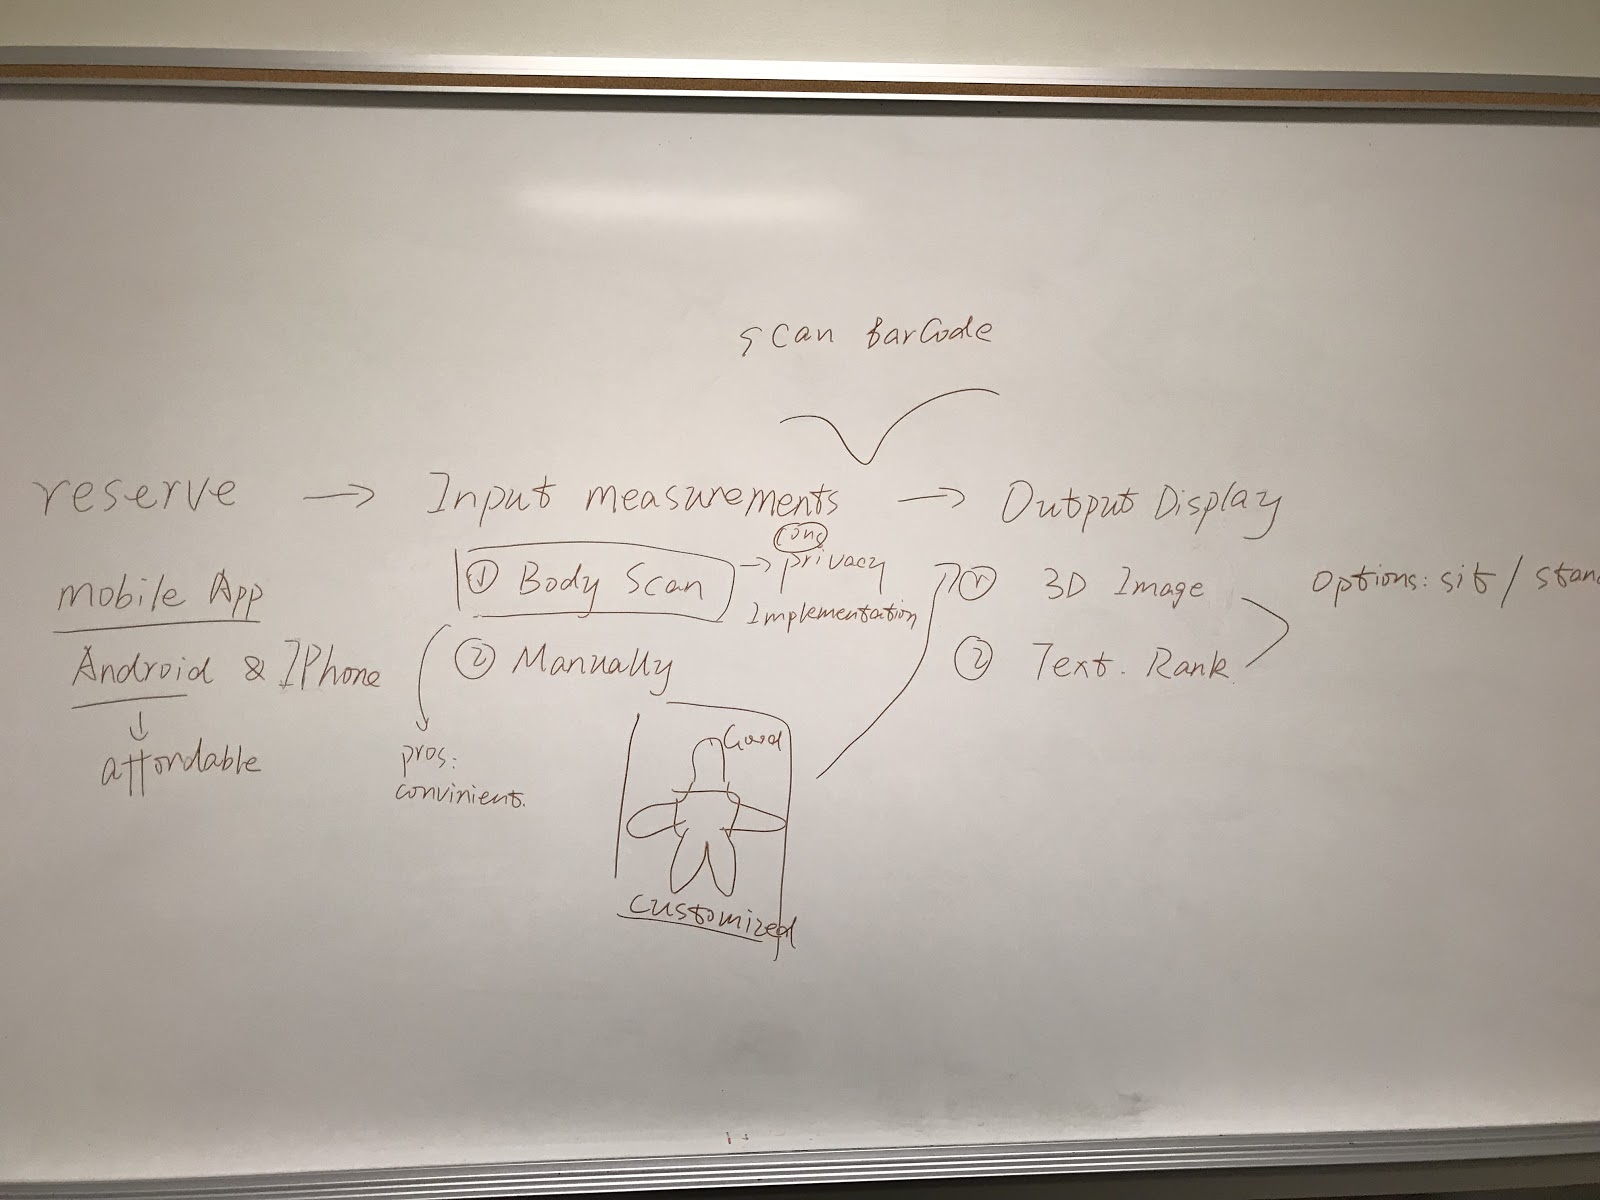 scan BarCode
reserve → Input measurements → Output Display
mobile App
Android & IPhone
↓
affordable
① Body Scan → privacy
cons
Implementation
② Manually
pros:
convinient.
Good
customized
① 3D Image
② Text. Rank
Options: sit / stan